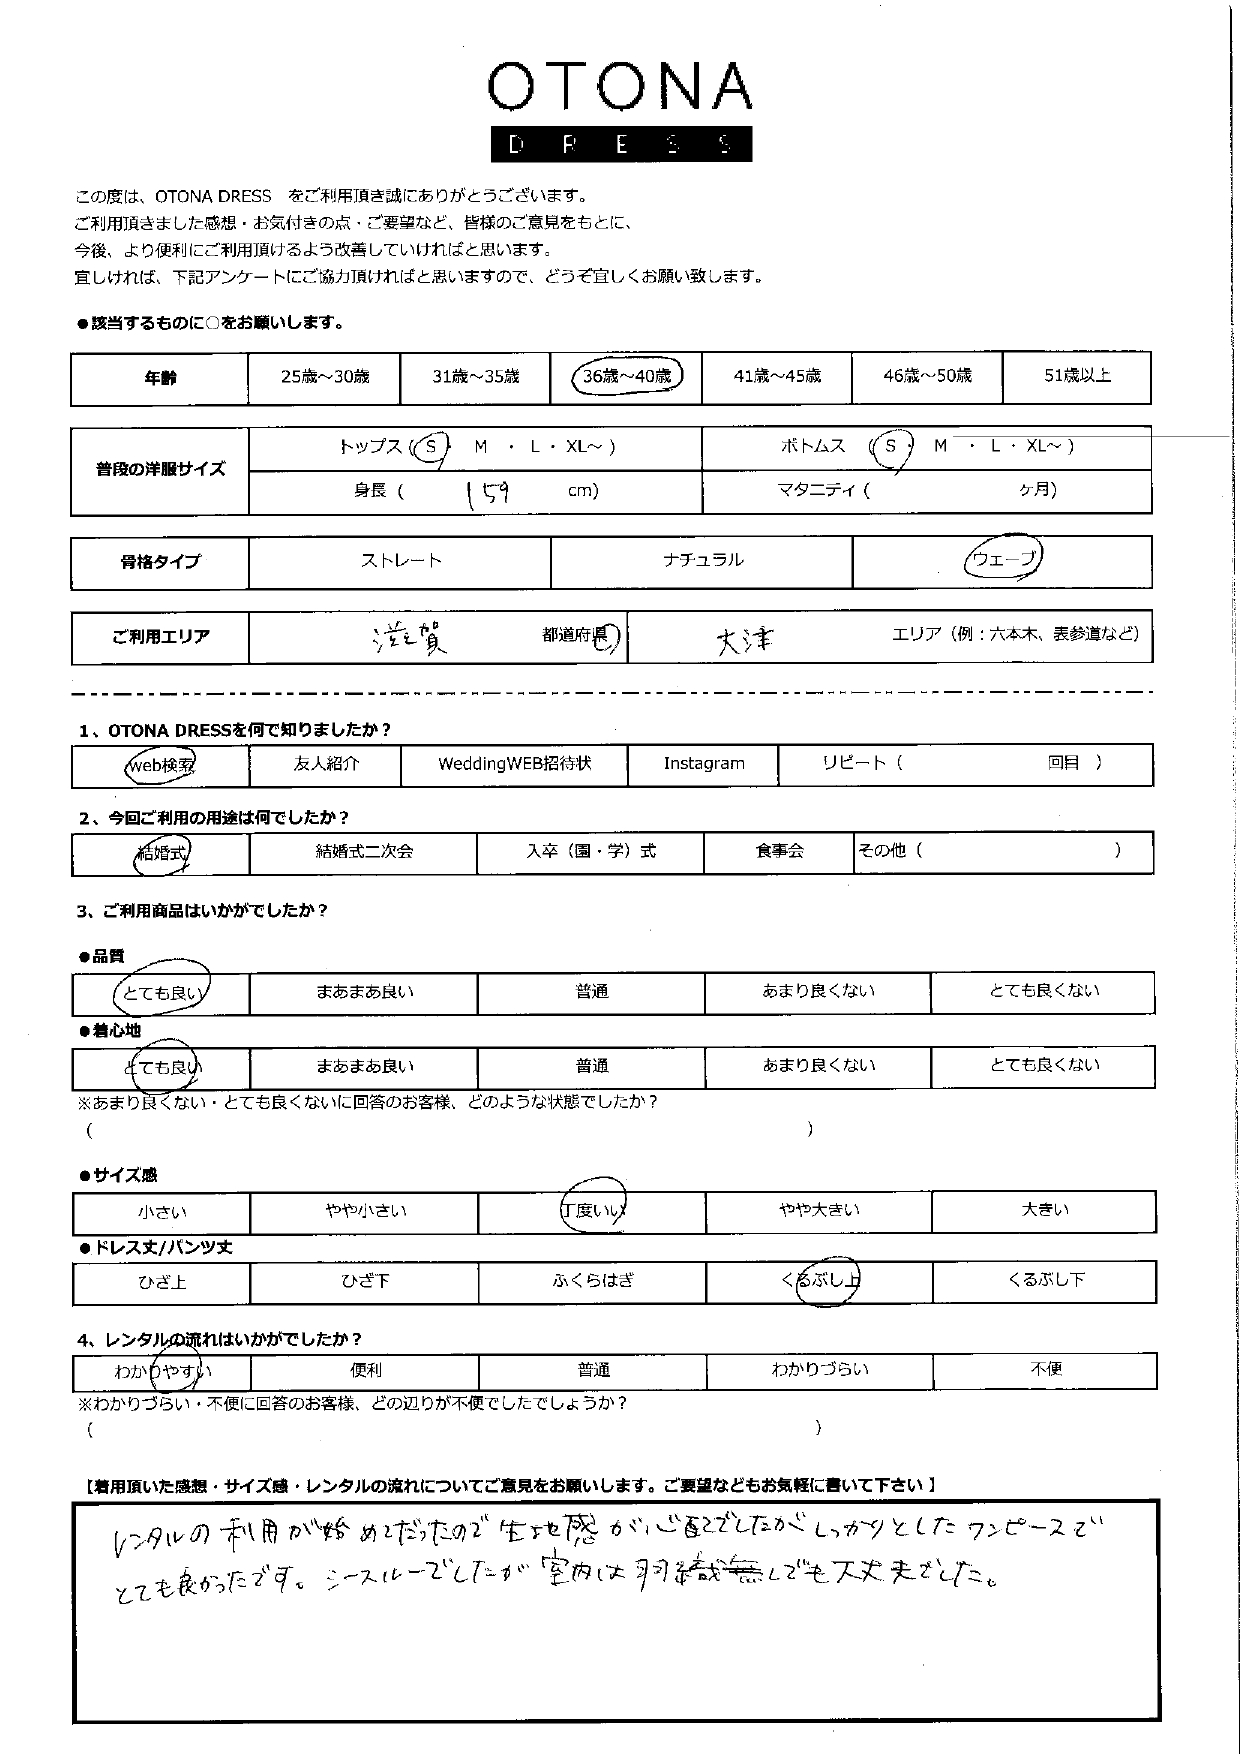 OTONA
DRESS
この度は、OTONA DRESS をご利用頂き誠にありがとうございます。
ご利用頂きました感想・お気付きの点・ご要望など、皆様のご意見をもとに、
今後、より便利にご利用頂けるよう改善していければと思います。
宜しければ、下記アンケートにご協力頂ければと思いますので、どうぞ宜しくお願い致します。
●該当するものに○をお願いします。
年齢 25歳～30歳 31歳～35歳 36歳～40歳 41歳～45歳 46歳～50歳 51歳以上
普段の洋服サイズ トップス (S・ M ・ L ・ XL～ ) ボトムス (S・ M ・ L ・ XL～ )
身長 ( 159 cm) マタニティ ( ヶ月)
骨格タイプ ストレート ナチュラル ウェーブ
ご利用エリア 滋賀 都道府県 大津 エリア（例：六本木、表参道など）
1、OTONA DRESSを何で知りましたか？
web検索 友人紹介 WeddingWEB招待状 Instagram リピート（ 回目 ）
2、今回ご利用の用途は何でしたか？
結婚式 結婚式二次会 入卒（園・学）式 食事会 その他（ ）
3、ご利用商品はいかがでしたか？
●品質
とても良い まあまあ良い 普通 あまり良くない とても良くない
●着心地
とても良い まあまあ良い 普通 あまり良くない とても良くない
※あまり良くない・とても良くないに回答のお客様、どのような状態でしたか？
( )
●サイズ感
小さい やや小さい 丁度いい やや大きい 大きい
●ドレス丈/パンツ丈
ひざ上 ひざ下 ふくらはぎ くるぶし上 くるぶし下
4、レンタルの流れはいかがでしたか？
わかりやすい 便利 普通 わかりづらい 不便
※わかりづらい・不便に回答のお客様、どの辺りが不便でしたでしょうか？
( )
【着用頂いた感想・サイズ感・レンタルの流れについてご意見をお願いします。ご要望などもお気軽に書いて下さい 】
レンタルの利用が始めてだったので生地感が心配でしたがしっかりとしたワンピースで
とても良かったです。シースルーでしたが室内は羽織無しでも大丈夫でした。